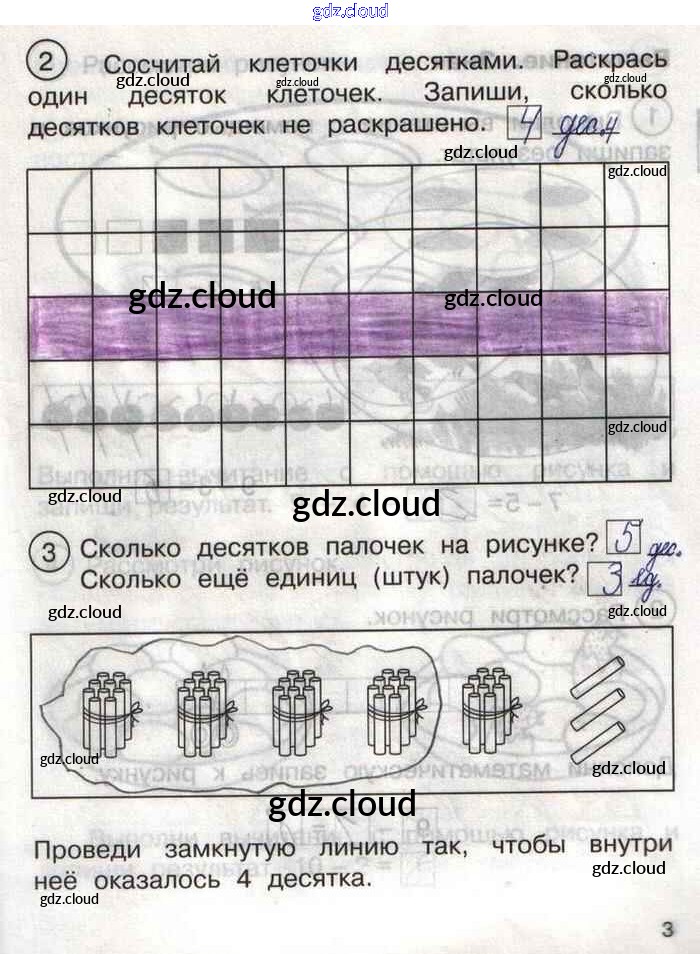 gdz.cloud
2 Сосчитай клеточки десятками. Раскрась
gdz.cloud gdz.cloud gdz.cloud
один десяток клеточек. Запиши, сколько
десятков клеточек не раскрашено. 4 дес.
gdz.cloud
gdz.cloud
gdz.cloud gdz.cloud
gdz.cloud
gdz.cloud
gdz.cloud
3 Сколько десятков палочек на рисунке? 5 дес.
Сколько ещё единиц (штук) палочек? 3 ед.
gdz.cloud gdz.cloud
gdz.cloud
gdz.cloud
gdz.cloud
Проведи замкнутую линию так, чтобы внутри
неё оказалось 4 десятка.
gdz.cloud
gdz.cloud
3